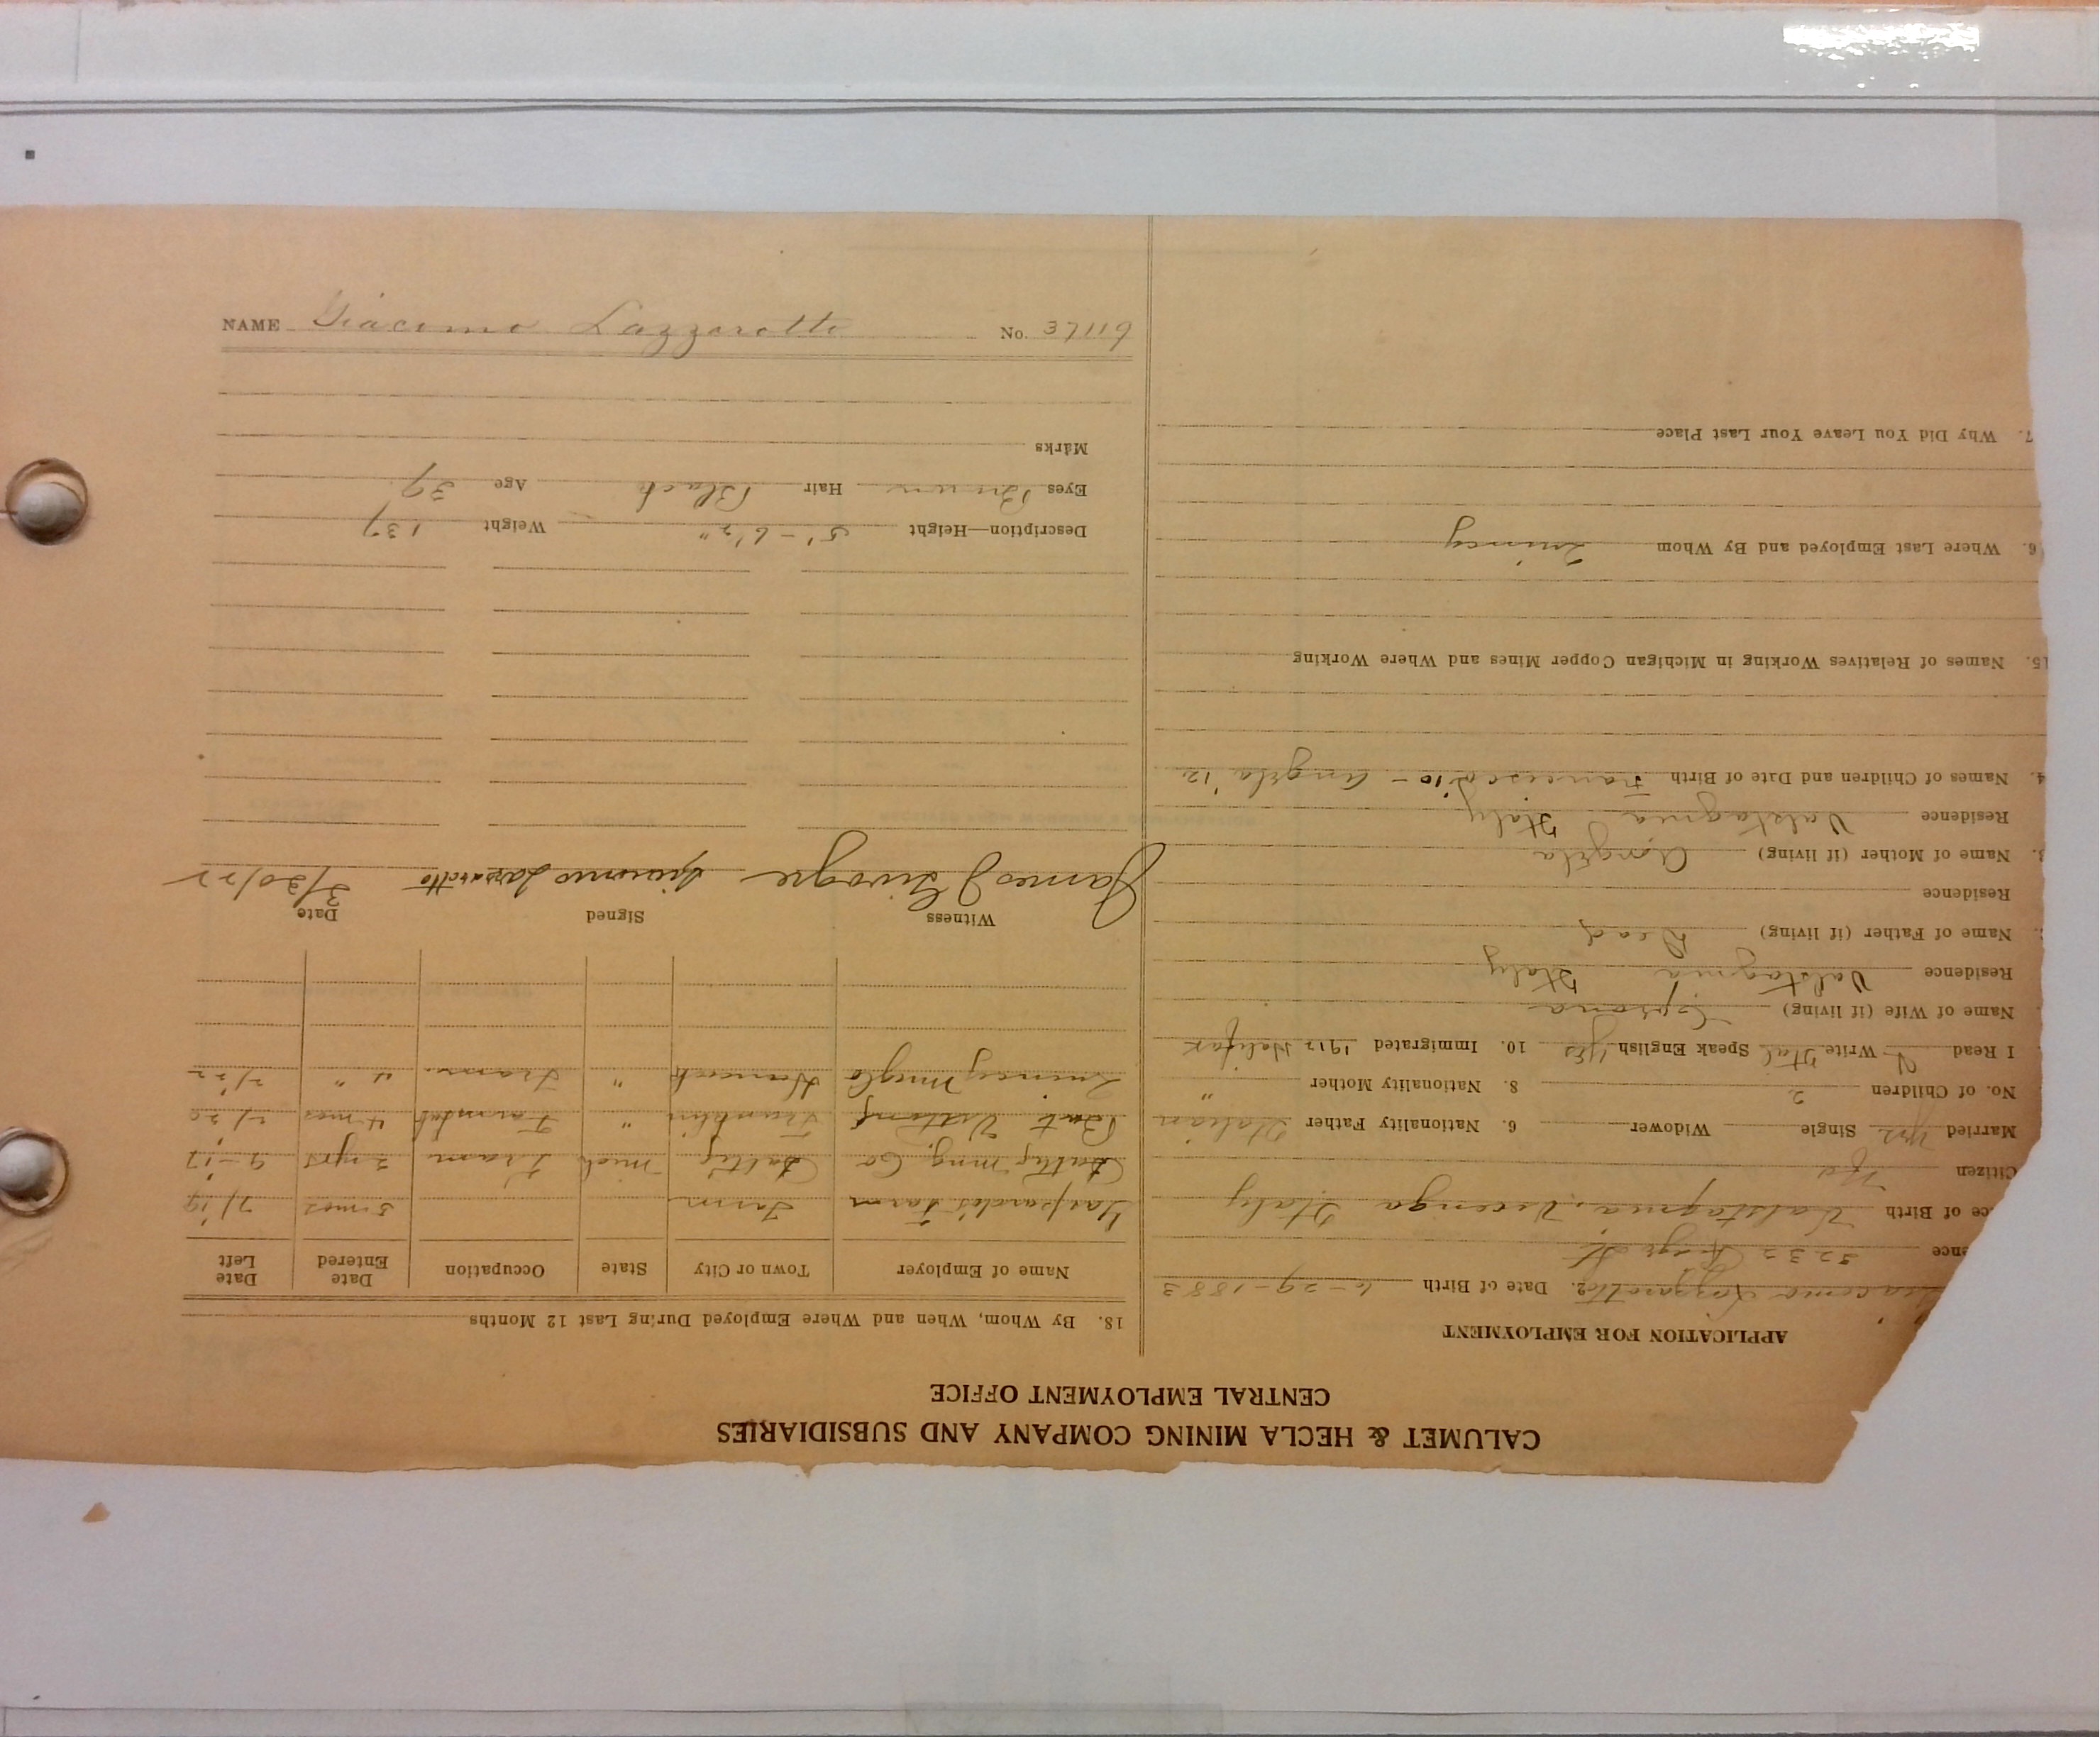 CALUMET & HECLA MINING COMPANY AND SUBSIDIARIES
CENTRAL EMPLOYMENT OFFICE
APPLICATION FOR EMPLOYMENT
Giacomo Lazzarotto 2. Date of Birth 6-29-1883
ence 3232 St
ce of Birth Valstagna, Vicenza Italy
Citizen No
Married yes Single Widower 6. Nationality Father Italian
No. of Children 2 8. Nationality Mother "
I Read Write Ital Speak English yes 10. Immigrated 1912 Halifax
Name of Wife (if living)
Residence Valstagna Italy
Name of Father (if living) Dead
Residence
3. Name of Mother (if living) Angela
Residence Valstagna Italy
4. Names of Children and Date of Birth Francisco '10 - Angela '12
15. Names of Relatives Working in Michigan Copper Mines and Where Working
6. Where Last Employed and By Whom Quincy
7. Why Did You Leave Your Last Place
18. By Whom, When and Where Employed During Last 12 Months
Name of Employer Town or City State Occupation Date Entered Date Left
Farm Farm 5 mos 7/19
Baltic Mng. Co Baltic Mich Tram 2 yrs 9-17
Franklin " 4 mos 2/20
Quincy Mng Co Hancock " Tram " " 2/22
Witness Signed Date
James J Giacomo Lazzarotto 3/20/22
Description—Height 5'-6½" Weight 137
Eyes Brown Hair Black Age 39
Marks
NAME Giacomo Lazzarotto No. 37119